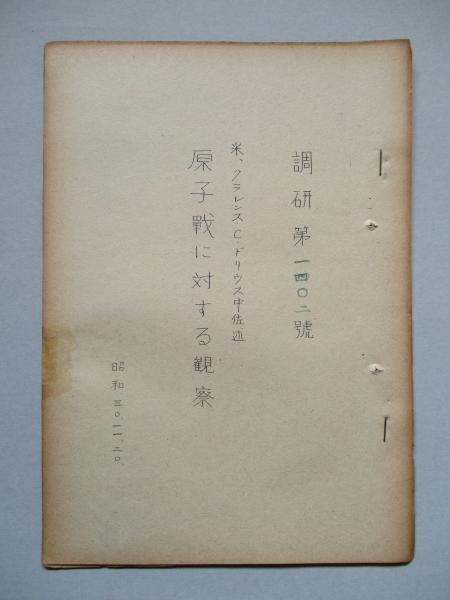 調研第一四〇二號
米、クラレンス.C.ドリウス中佐述
原子戰に対する観察
昭和三〇.一一.二〇